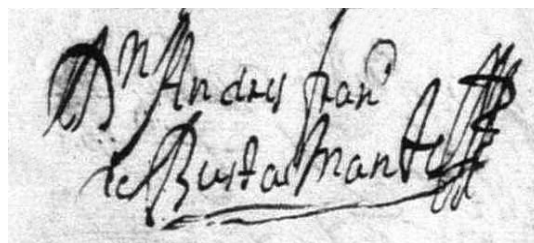 Dn Andres franco
de Bustamante